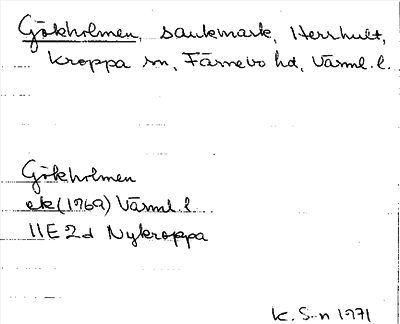 Gökholmen, sankmark, Herrhult,
Kroppa sn, Färnebo hd, Värml. l.
Gökholmen
ek (1969) Värml. l
11E 2d Nykroppa
K. S-n 1971